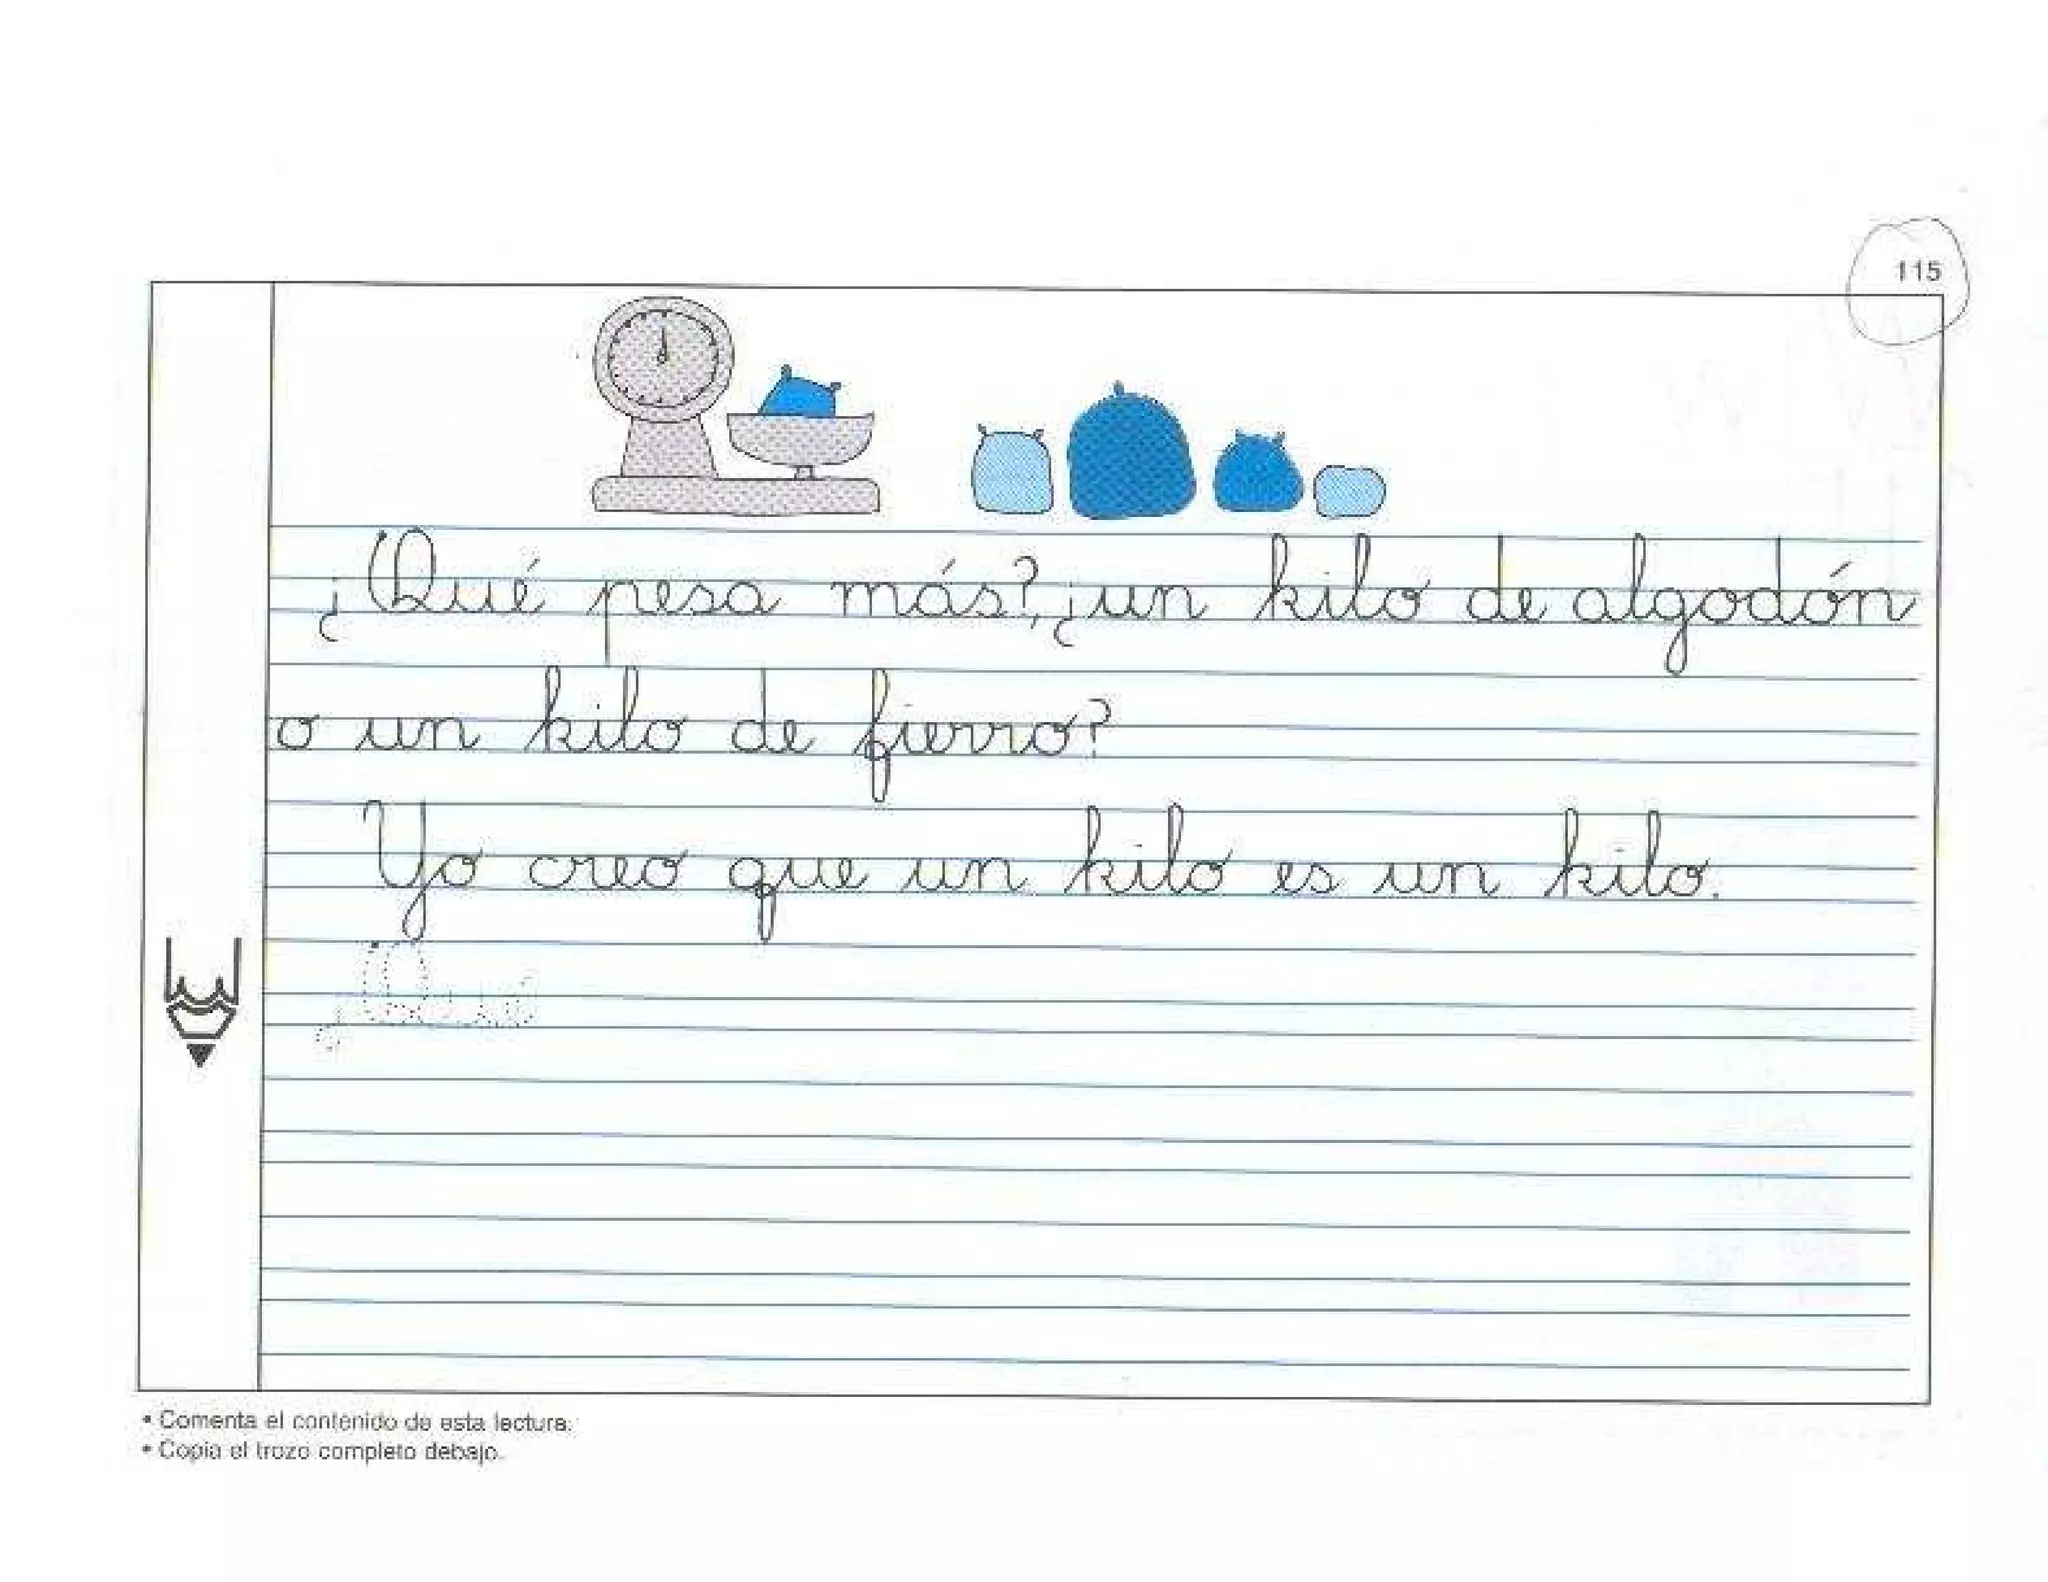 115
¿Qué pesa más?, ¿un kilo de algodón
o un kilo de fierro?
Yo creo que un kilo es un kilo.
¿Qué
• Comenta el contenido de esta lectura.
• Copia el trozo completo debajo.